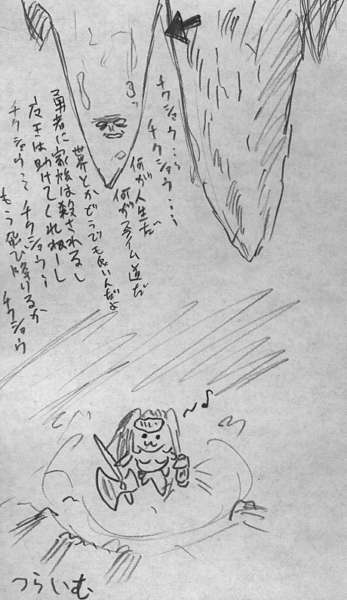 チクショウ…
チクショウ…
何が人生だ
何がスライム道だ
世界とかどうでも良いんだよ
勇者に家族は殺されるし
魔王は助けてくれねーし
チクショウ… チクショウ…
もう飛び降りるか
チクショウ
つらいむ